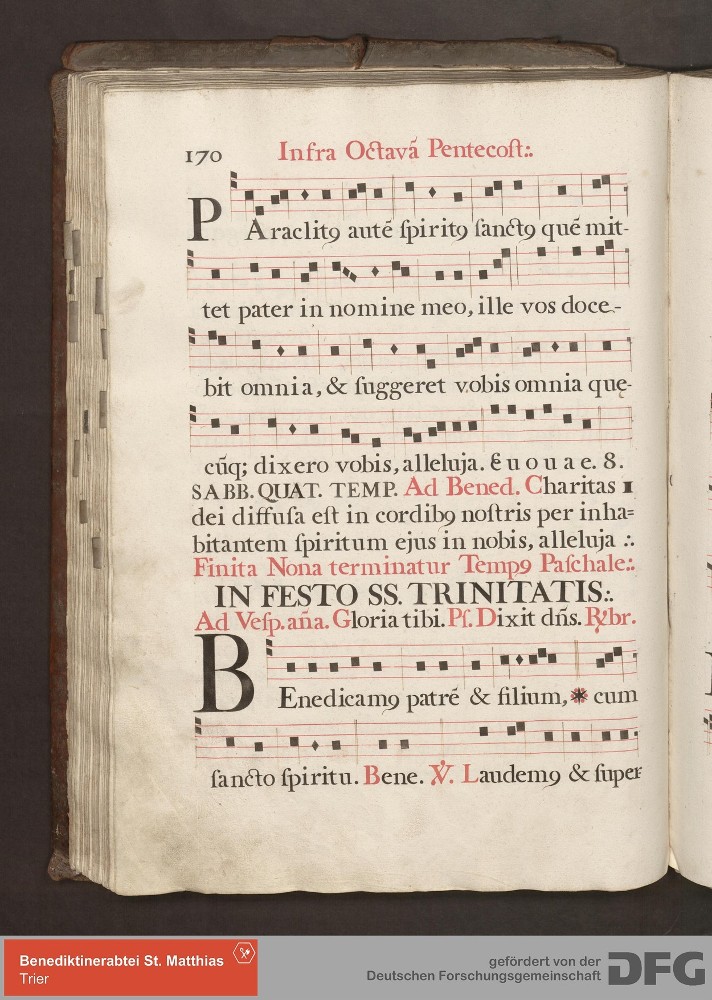 170 Infra Octavã Pentecost:.
PAraclitꝯ autẽ ſpiritꝯ ſanctꝯ quẽ mit-
tet pater in nomine meo, ille vos doce-
bit omnia, & ſuggeret vobis omnia quę-
cũq; dixero vobis, alleluja. Euouae. 8.
SABB. QUAT. TEMP. Ad Bened. Charitas
dei diffuſa eſt in cordibꝯ noſtris per inha=
bitantem ſpiritum ejus in nobis, alleluja :.
Finita Nona terminatur Tempꝯ Paſchale:.
IN FESTO SS. TRINITATIS:.
Ad Veſp. aña. Gloria tibi. Pſ. Dixit dñs. ℟br.
BEnedicamꝯ patrẽ & filium, * cum
ſancto ſpiritu. Bene. ℣. Laudemꝯ & ſuper
Benediktinerabtei St. Matthias
Trier
gefördert von der
Deutschen Forschungsgemeinschaft
DFG